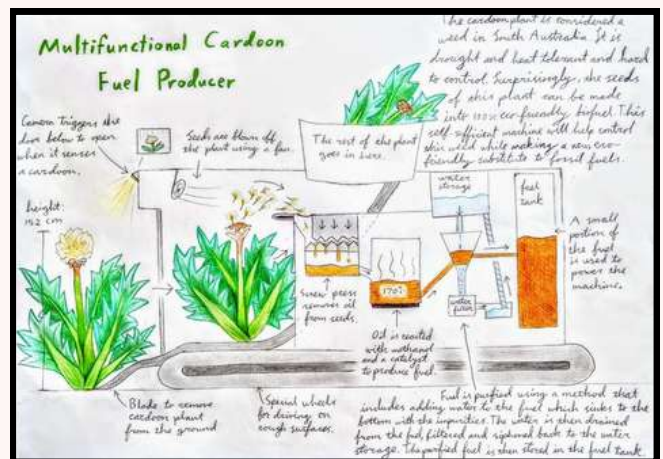 Multifunctional Cardoon
Fuel Producer
The cardoon plant is considered a
weed in South Australia. It is
drought and heat tolerant and hard
to control. Surprisingly, the seeds
of this plant can be made
into 100% eco-friendly biofuel. This
self-sufficient machine will help control
this weed while making a new eco-
friendly substitute to fossil fuels.
Camera triggers the
door below to open
when it senses
a cardoon.
Seeds are blown off
the plant using a fan.
The rest of the plant
goes in here.
water
storage
fuel
tank
height:
152 cm
A small
portion of
the fuel
is used to
power the
machine.
Screw press
removes oil
from seeds.
170°
water
filter
Oil is reacted
with methanol
and a catalyst
to produce fuel.
Blade to remove
cardoon plant
from the ground
Special wheels
for driving on
rough surfaces.
Fuel is purified using a method that
includes adding water to the fuel which sinks to the
bottom with the impurities. The water is then drained
from the fuel, filtered and siphoned back to the water
storage. The purified fuel is then stored in the fuel tank.